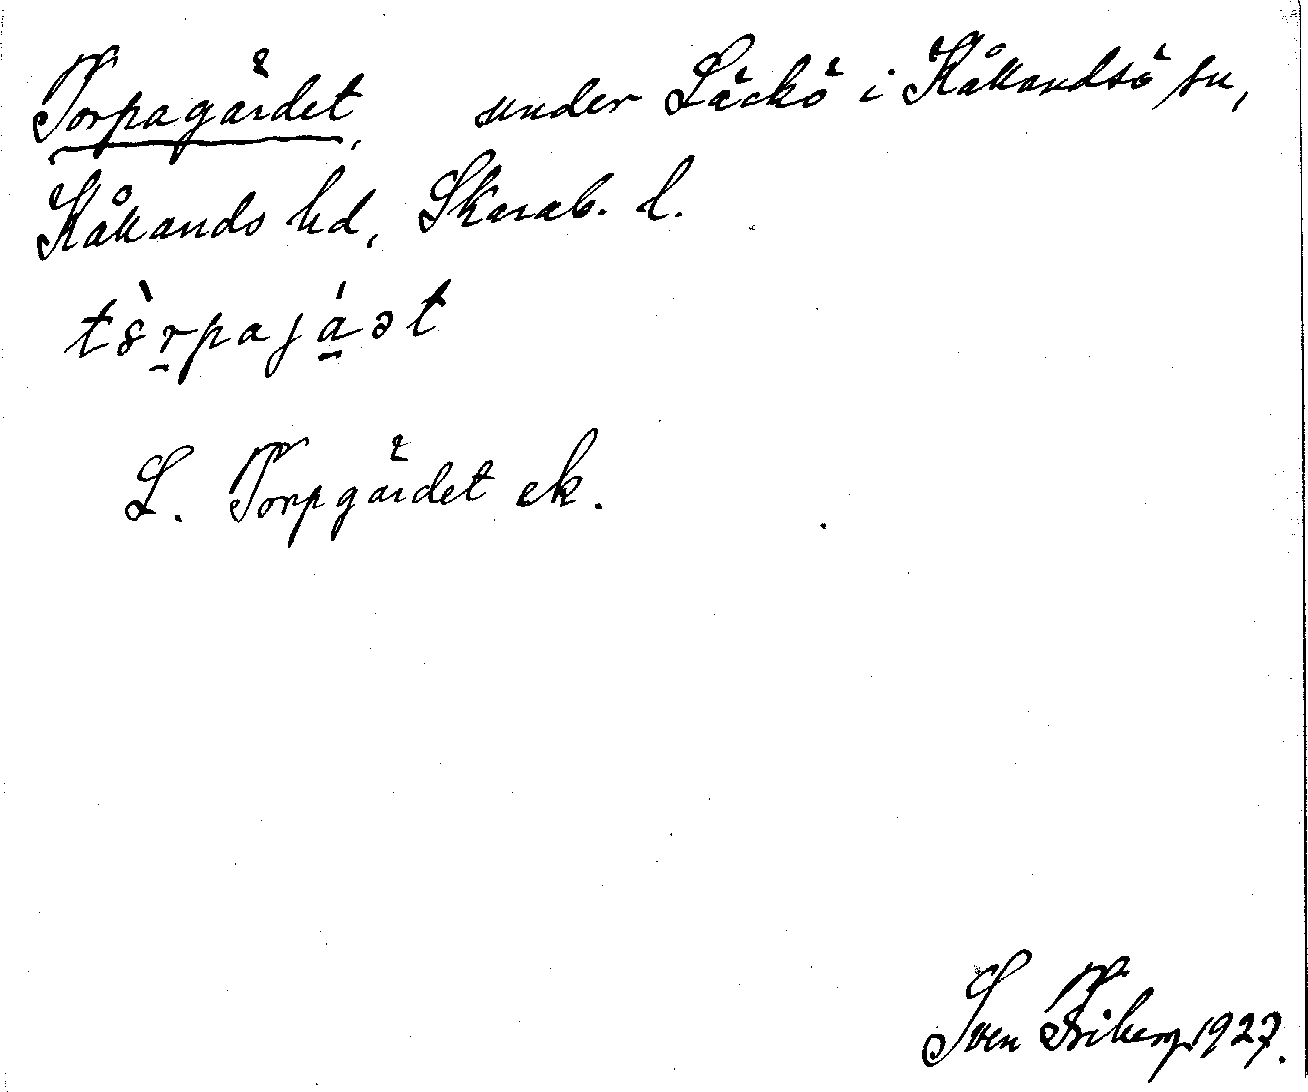 Torpagärdet, under Läckö i Kållandsö sn,
Kållands hd, Skarab. l.
tòrpajást
L. Torpgärdet ek.
Sven Friberg 1927.